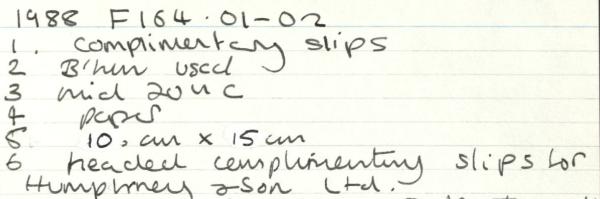 1988 F164.01-02
1. complimentary slips
2 B'ham used
3 mid 20th C
4 paper
5 10. cm x 15cm
6 headed complimentary slips for
Humphrey & Son Ltd.